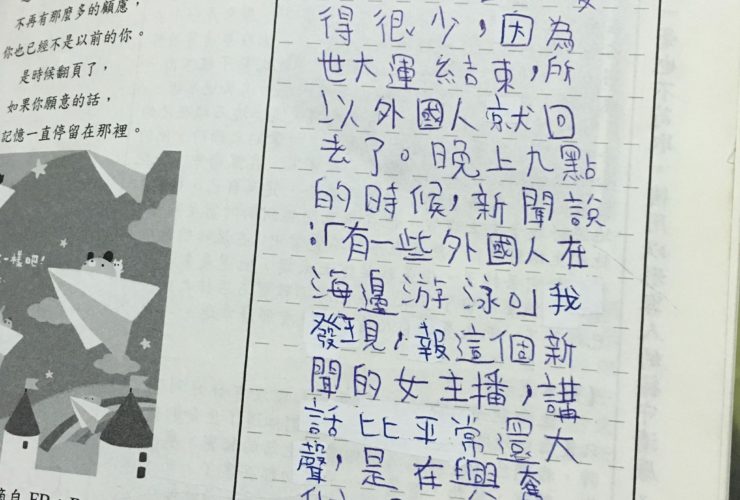 不再有那麼多的顧慮，
你也已經不是以前的你。
是時候翻頁了，
如果你願意的話，
記憶一直停留在那裡。
一樣吧！
得很少，因為
世大運結束，所
以外國人就回
去了。晚上九點
的時候，新聞說
：「有一些外國人在
海邊游泳。」我
發現，報這個新
聞的女主播，講
話比平常還大
聲，是在興奮